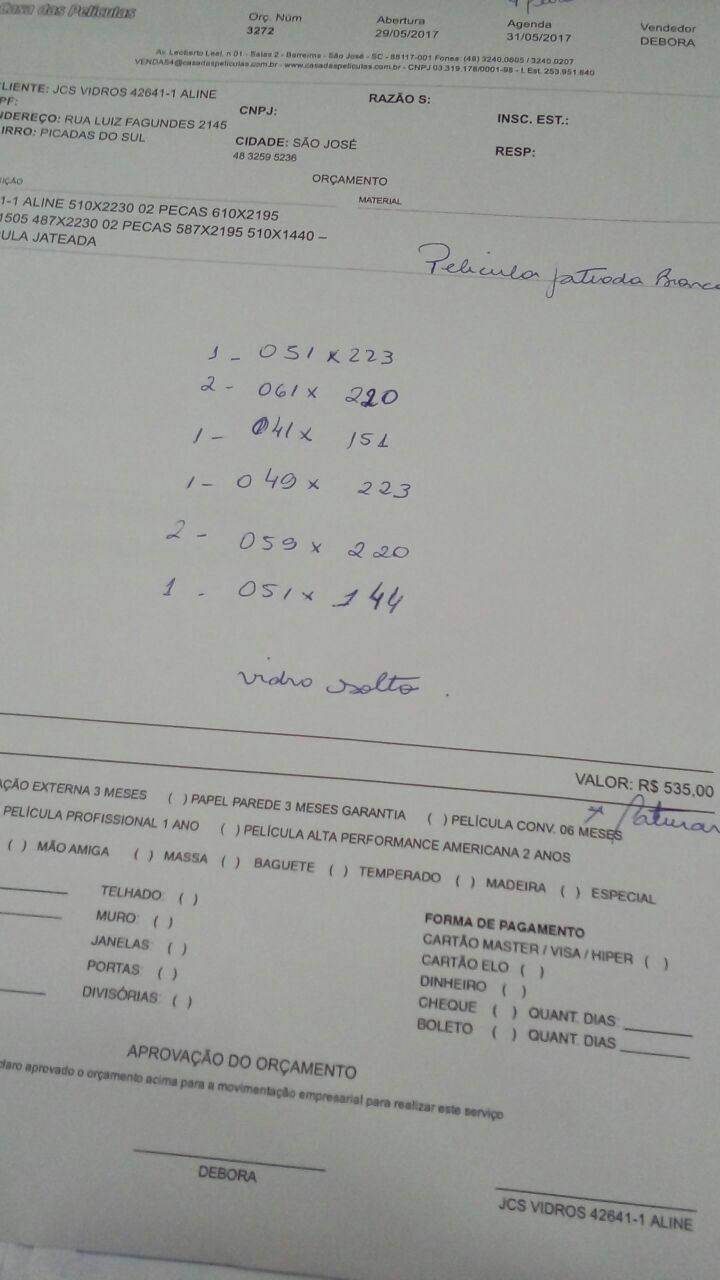 Casa das Películas
Orç. Núm
3272
Abertura
29/05/2017
Agenda
31/05/2017
Vendedor
DEBORA
Av. Leoberto Leal, n 01 - Salas 2 - Barreiros - São José - SC - 88117-001 Fones: (48) 3240.0805 / 3240.0207
VENDAS4@casadaspeliculas.com.br - www.casadaspeliculas.com.br - CNPJ 03.319.178/0001-98 - I. Est. 253.951.640
CLIENTE: JCS VIDROS 42641-1 ALINE
CNPJ:
RAZÃO S:
INSC. EST.:
PF:
NDEREÇO: RUA LUIZ FAGUNDES 2145
CIDADE: SÃO JOSÉ
RESP:
IRRO: PICADAS DO SUL
48 3259 5236
ORÇAMENTO
IÇÃO
MATERIAL
1-1 ALINE 510X2230 02 PECAS 610X2195
1505 487X2230 02 PECAS 587X2195 510X1440 –
ULA JATEADA
Pelicula jateada Branca
1 - 051 x 223
2 - 061 x 220
1 - 041 x 151
1 - 049 x 223
2 - 059 x 220
1 - 051 x 144
vidro solto.
VALOR: R$ 535,00
x faturar
AÇÃO EXTERNA 3 MESES ( ) PAPEL PAREDE 3 MESES GARANTIA ( ) PELÍCULA CONV. 06 MESES
PELÍCULA PROFISSIONAL 1 ANO ( ) PELÍCULA ALTA PERFORMANCE AMERICANA 2 ANOS
( ) MÃO AMIGA ( ) MASSA ( ) BAGUETE ( ) TEMPERADO ( ) MADEIRA ( ) ESPECIAL
TELHADO: ( )
MURO: ( )
JANELAS: ( )
PORTAS: ( )
DIVISÓRIAS: ( )
FORMA DE PAGAMENTO
CARTÃO MASTER / VISA / HIPER ( )
CARTÃO ELO ( )
DINHEIRO ( )
CHEQUE ( ) QUANT. DIAS:
BOLETO ( ) QUANT. DIAS
APROVAÇÃO DO ORÇAMENTO
claro aprovado o orçamento acima para a movimentação empresarial para realizar este serviço
DEBORA
JCS VIDROS 42641-1 ALINE